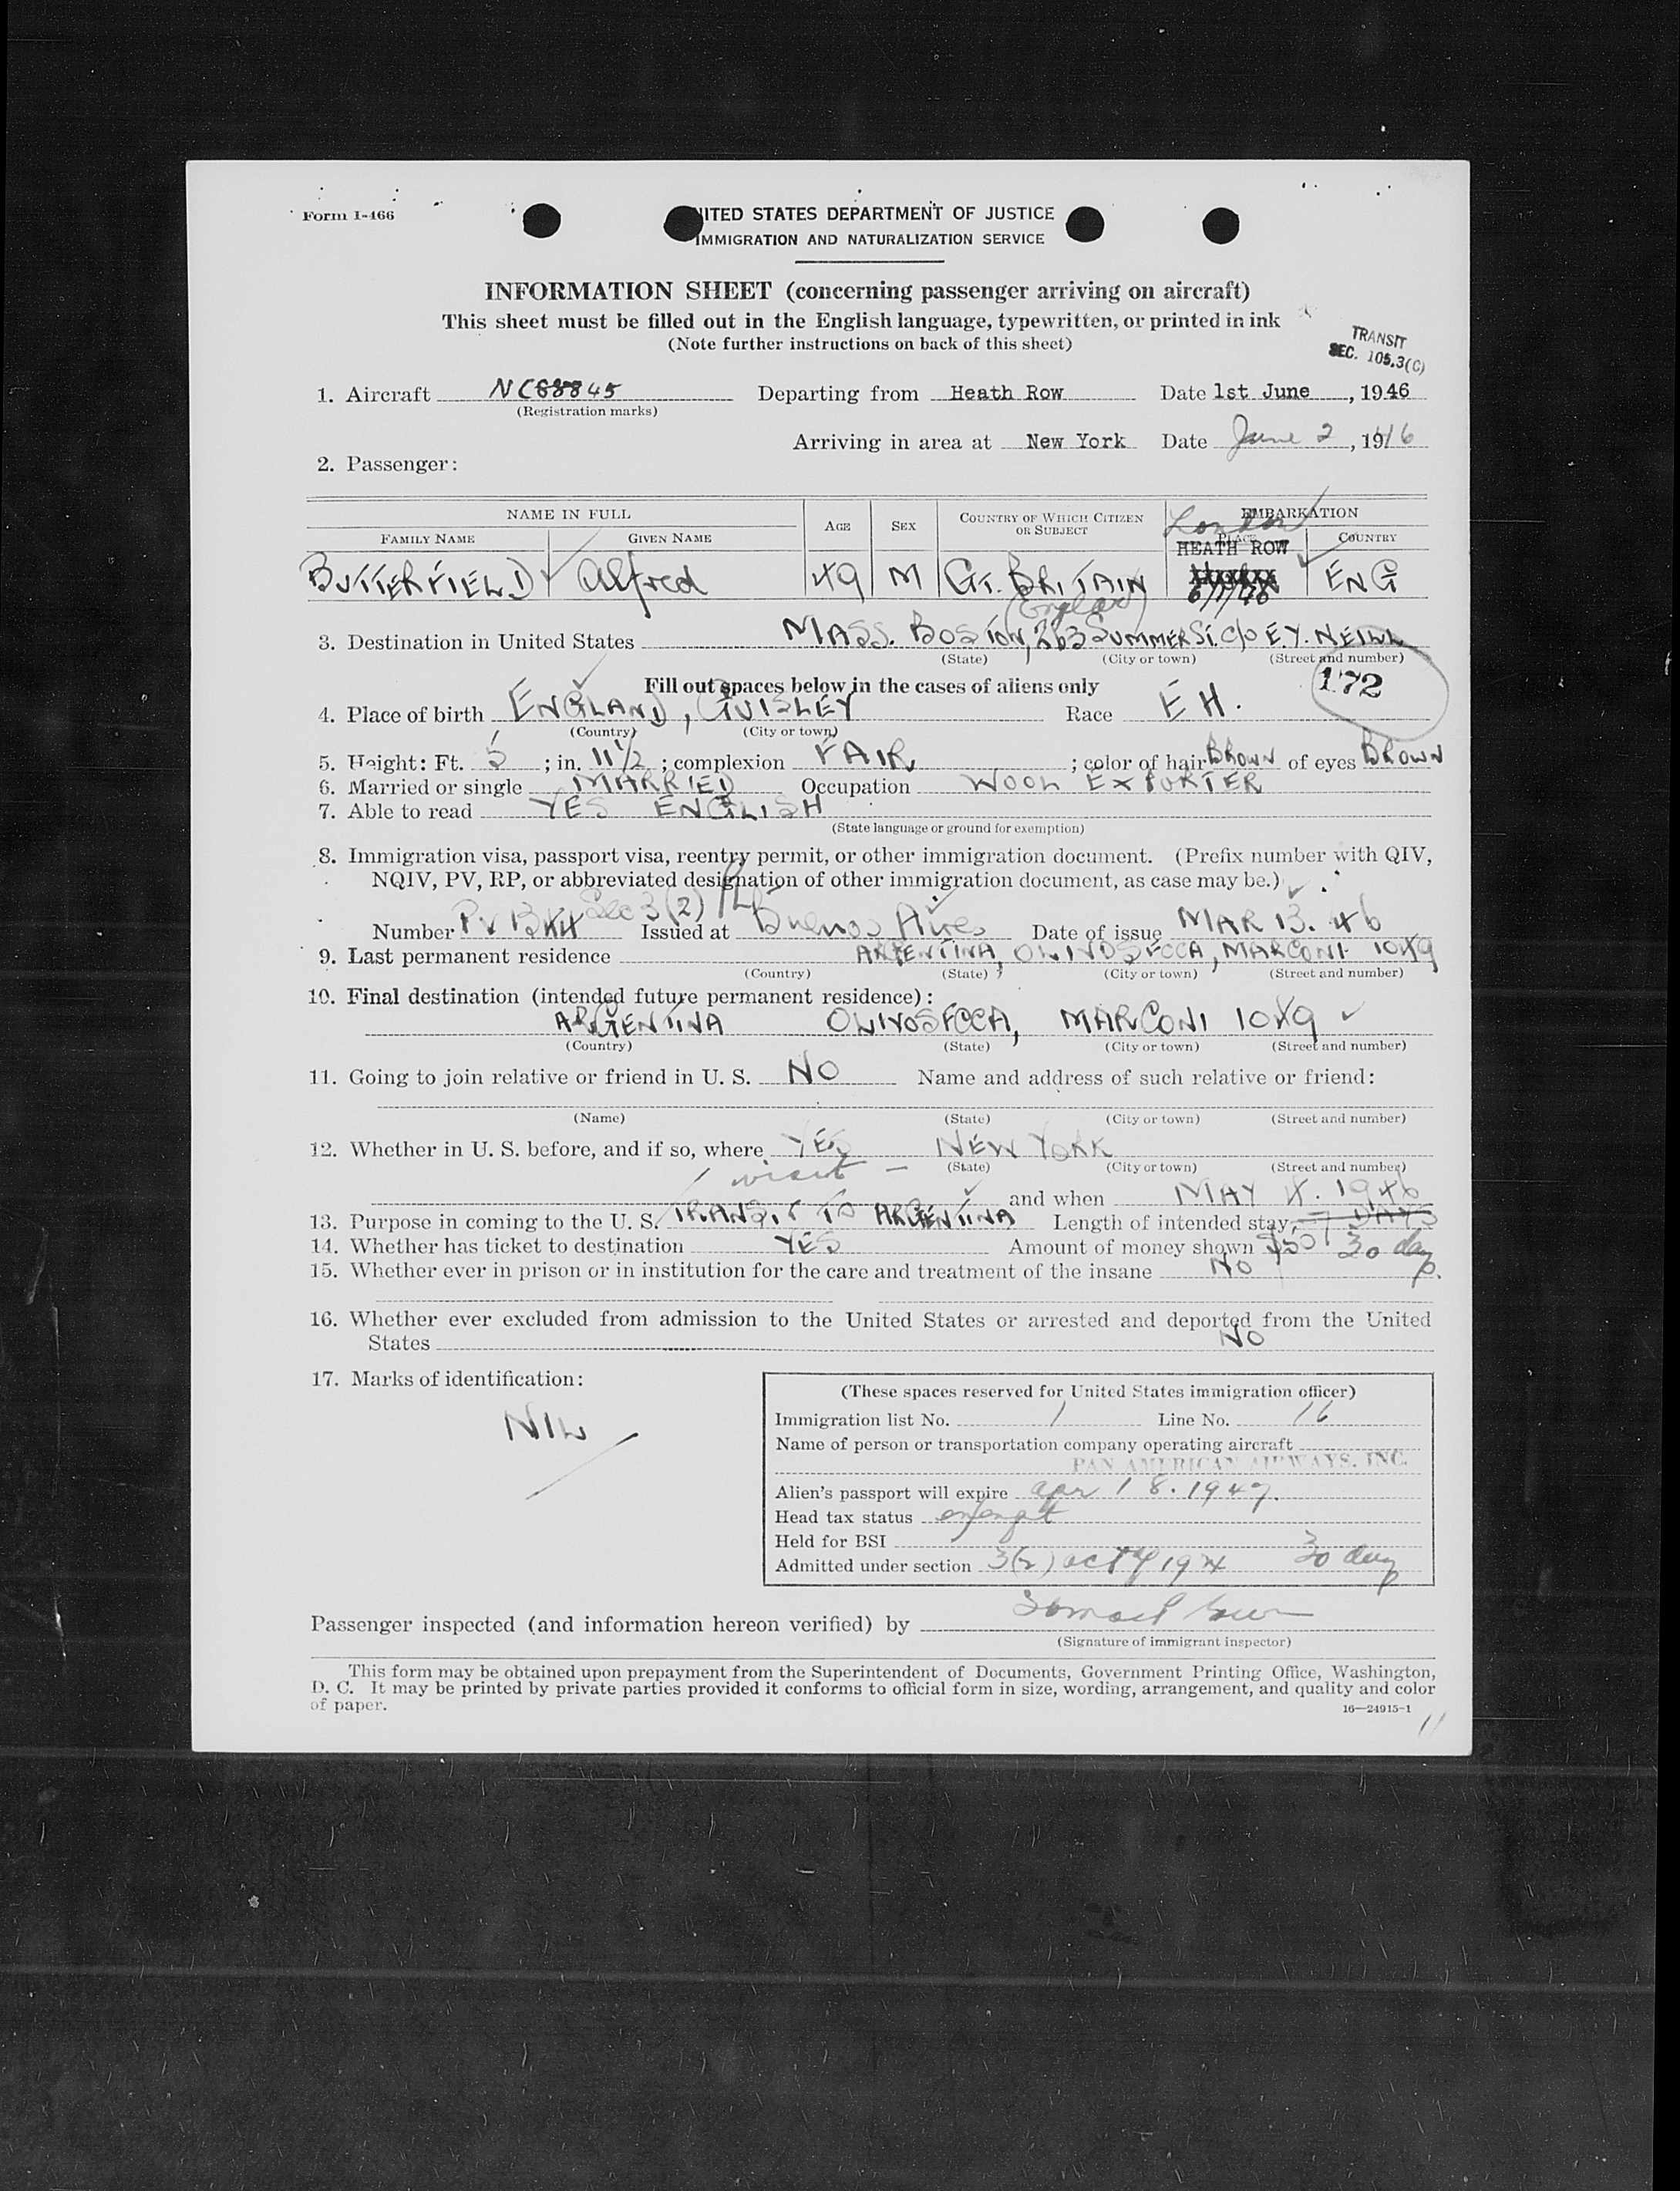 Form I-466
UNITED STATES DEPARTMENT OF JUSTICE
IMMIGRATION AND NATURALIZATION SERVICE
INFORMATION SHEET (concerning passenger arriving on aircraft)
This sheet must be filled out in the English language, typewritten, or printed in ink
(Note further instructions on back of this sheet)
TRANSIT
SEC. 105.3(C)
1. Aircraft NC88845 Departing from Heath Row Date 1st June, 1946
(Registration marks)
Arriving in area at New York Date June 2, 1946
2. Passenger:
NAME IN FULL AGE SEX COUNTRY OF WHICH CITIZEN OR SUBJECT EMBARKATION
London
FAMILY NAME GIVEN NAME PLACE COUNTRY
HEATH ROW
BUTTERFIELD Alfred 49 M GT. BRITAIN ENG
6/1/46
(England)
3. Destination in United States MASS. BOSTON, 263 SUMMER ST. C/O E.Y. NEILL
(State) (City or town) (Street and number)
172
Fill out spaces below in the cases of aliens only
4. Place of birth ENGLAND, GUISLEY Race EH.
(Country) (City or town)
5. Height: Ft. 5; in. 11 1/2; complexion FAIR; color of hair BROWN of eyes BROWN
6. Married or single MARRIED Occupation WOOL EXPORTER
7. Able to read YES ENGLISH
(State language or ground for exemption)
8. Immigration visa, passport visa, reentry permit, or other immigration document. (Prefix number with QIV,
NQIV, PV, RP, or abbreviated designation of other immigration document, as case may be.)
Sec 3(2)
Number PV Issued at Buenos Aires Date of issue MAR 13. 46
9. Last permanent residence ARGENTINA, OLIVOS FCCA, MARCONI 1049
(Country) (State) (City or town) (Street and number)
10. Final destination (intended future permanent residence):
ARGENTINA OLIVOS FCCA, MARCONI 1049
(Country) (State) (City or town) (Street and number)
11. Going to join relative or friend in U. S. NO Name and address of such relative or friend:
(Name) (State) (City or town) (Street and number)
12. Whether in U. S. before, and if so, where YES NEW YORK
(State) (City or town) (Street and number)
1 visit — and when MAY 4. 1946
13. Purpose in coming to the U. S. TRANSIT TO ARGENTINA Length of intended stay 7 DAYS
14. Whether has ticket to destination YES Amount of money shown $50 30 days
15. Whether ever in prison or in institution for the care and treatment of the insane NO
16. Whether ever excluded from admission to the United States or arrested and deported from the United
States NO
17. Marks of identification:
NIL
(These spaces reserved for United States immigration officer)
Immigration list No. 1 Line No. 16
Name of person or transportation company operating aircraft
PAN AMERICAN AIRWAYS, INC.
Alien's passport will expire apr 18. 1947.
Head tax status exempt
Held for BSI
Admitted under section 3(2) act of 1924 30 days
Passenger inspected (and information hereon verified) by
(Signature of immigrant inspector)
This form may be obtained upon prepayment from the Superintendent of Documents, Government Printing Office, Washington,
D. C. It may be printed by private parties provided it conforms to official form in size, wording, arrangement, and quality and color
of paper.
16—24915-1
11